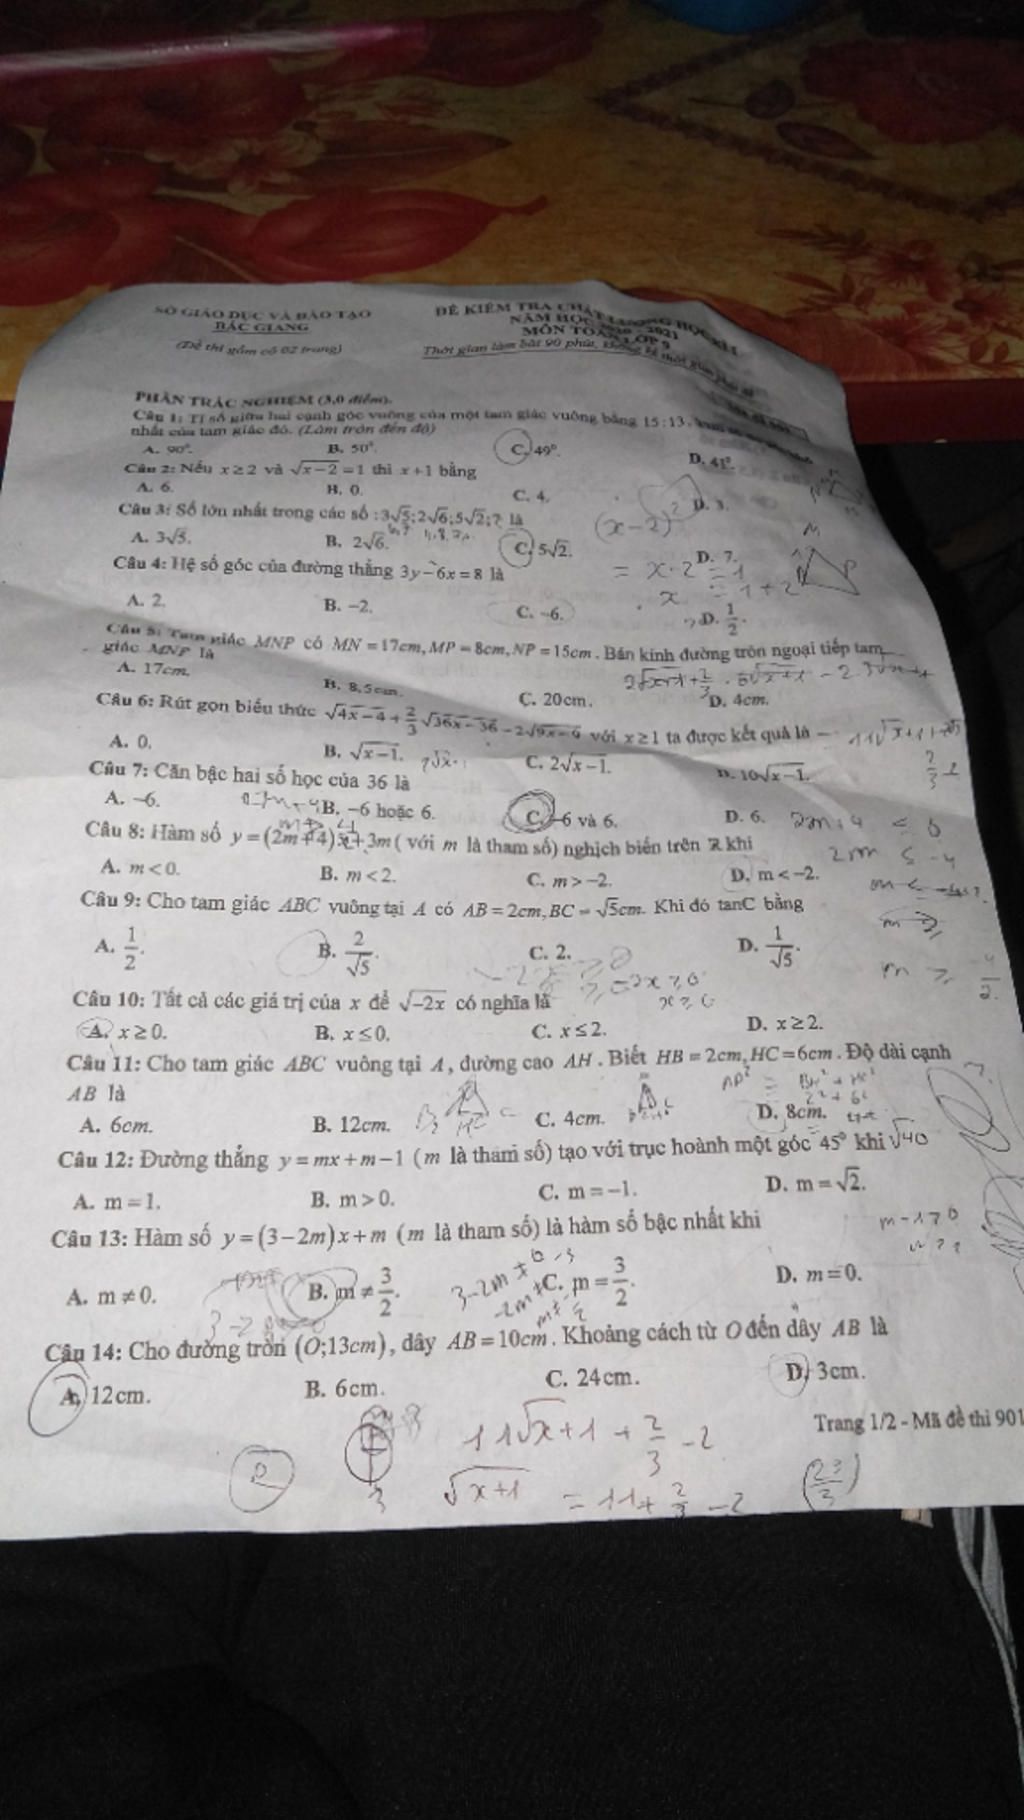 SỞ GIÁO DỤC VÀ ĐÀO TẠO
BẮC GIANG
(Đề thi gồm có 02 trang)
ĐỀ KIỂM TRA CHẤT LƯỢNG HỌC KÌ I
NĂM HỌC 2020 - 2021
MÔN TOÁN LỚP 9
Thời gian làm bài 90 phút, không kể thời gian
PHẦN TRẮC NGHIỆM (3,0 điểm).
Câu 1: Tỉ số giữa hai cạnh góc vuông của một tam giác vuông bằng 15:13.
nhất của tam giác đó. (Làm tròn đến độ)
A. 90°. B. 50°. C. 49°. D. 41°.
Câu 2: Nếu x ≥ 2 và √(x−2) = 1 thì x+1 bằng
A. 6. B. 0. C. 4. D. 3.
Câu 3: Số lớn nhất trong các số : 3√5; 2√6; 5√2; 7 là
A. 3√5. B. 2√6. C. 5√2. D. 7.
Câu 4: Hệ số góc của đường thẳng 3y−6x = 8 là
A. 2. B. −2. C. −6. D. 1/2.
Câu 5: Tam giác MNP có MN = 17cm, MP = 8cm, NP = 15cm. Bán kính đường tròn ngoại tiếp tam
giác MNP là
A. 17cm. B. 8,5cm. C. 20cm. D. 4cm.
Câu 6: Rút gọn biểu thức √(4x−4) + 2/3 √(36x−36) − 2√(9x−9) với x ≥ 1 ta được kết quả là
A. 0. B. √(x−1). C. 2√(x−1). D. 10√(x−1).
Câu 7: Căn bậc hai số học của 36 là
A. −6. B. −6 hoặc 6. C. −6 và 6. D. 6.
Câu 8: Hàm số y = (2m+4)x+3m ( với m là tham số) nghịch biến trên R khi
A. m < 0. B. m < 2. C. m > −2. D. m < −2.
Câu 9: Cho tam giác ABC vuông tại A có AB = 2cm, BC = √5cm. Khi đó tanC bằng
A. 1/2. B. 2/√5. C. 2. D. 1/√5.
Câu 10: Tất cả các giá trị của x để √(−2x) có nghĩa là
A. x ≥ 0. B. x ≤ 0. C. x ≤ 2. D. x ≥ 2.
Câu 11: Cho tam giác ABC vuông tại A, đường cao AH. Biết HB = 2cm, HC = 6cm. Độ dài cạnh
AB là
A. 6cm. B. 12cm. C. 4cm. D. 8cm.
Câu 12: Đường thẳng y = mx+m−1 (m là tham số) tạo với trục hoành một góc 45° khi √40
A. m = 1. B. m > 0. C. m = −1. D. m = √2.
Câu 13: Hàm số y = (3−2m)x+m (m là tham số) là hàm số bậc nhất khi
A. m ≠ 0. B. m ≠ 3/2. C. m = 3/2. D. m = 0.
Câu 14: Cho đường tròn (O;13cm), dây AB = 10cm. Khoảng cách từ O đến dây AB là
A. 12cm. B. 6cm. C. 24cm. D. 3cm.
Trang 1/2 - Mã đề thi 901
11√x+1 + 2/3 −2
√x+1 = 11+ 2/3 −2